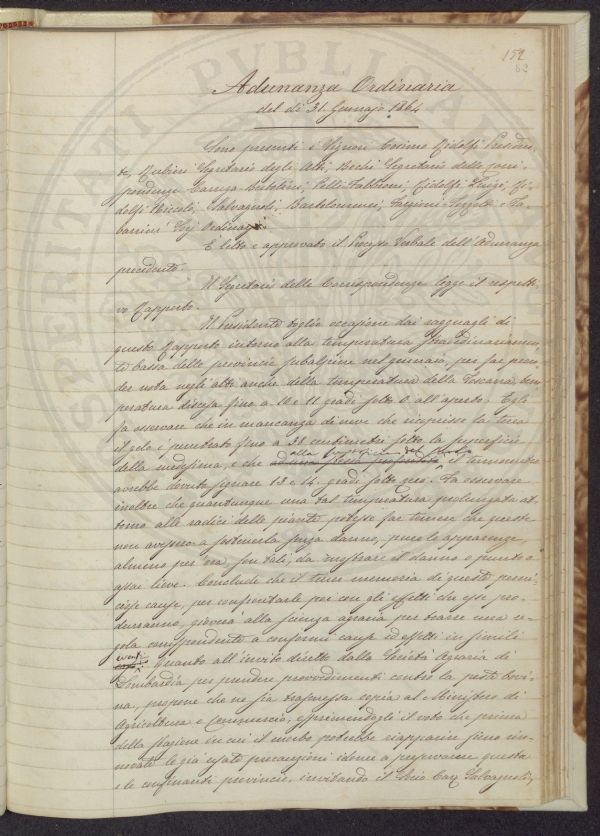 152
62
Adunanza Ordinaria
del dì 31. Gennajo 1864
Sono presenti i Signori Cosimo Ridolfi Presiden-
te, Rubieri Segretario degli Atti, Bechi Segretario delle corri-
spondenze Carega Bibliotec.o, Pelli Fabbroni, Ridolfi Luigi, Ri-
dolfi Niccolò, Salvagnoli, Bartolommei, Tozzetti e Ta-
barrini Socj Ordinarj.
È letto e approvato il Processo Verbale dell'Adunanza
precedente.
Il Segretario delle Corrispondenze legge il respetti-
vo Rapporto.
Il Presidente toglie occasione dai ragguagli di
questo Rapporto intorno alla temperatura straordinariamen-
te bassa delle provincie subalpine nel gennaio, per far pren-
der nota negli atti anche della temperatura della Toscana, tem-
peratura discesa fino a 10 e 11 gradi sotto 0. all'aperto. Egli
fa osservare che in mancanza di neve che ricoprisse la terra
il gelo è penetrato fino a 38 centimetri sotto la superficie
alla superficie del suolo
della medesima, e che ad una fissa profondità il termometro
avrebbe dovuto segnare 13 e 14. gradi sotto zero. Fa osservare
inoltre che quantunque una tal temperatura prolungata at-
torno alle radici delle piante potesse far temere che queste
non avessero a sostenerla senza danno, pure le apparenze,
almeno per ora, son tali, da mostrare il danno o punto o
assai lieve. Conclude che il tener memoria di queste perni-
ciose cause, per confrontarle poi con gli effetti che esse pro-
durranno, gioverà alla scienza agraria per trarre una re-
gola corrispondente a conformi cause ed effetti in simili
eventi
Quanto all'invito diretto dalla Società Agraria di
Lombardia per prendere provvedimenti contro la peste bovi-
na, propone che ne sia trasmessa copia al Ministero di
Agricoltura e Commercio, esprimendogli il voto che prima
della stagione in cui il morbo potrebbe riapparire sieno rin-
novate le già usate precauzioni idonee a preservare questa
e le confinanti provincie, invitando il Socio Cav. Salvagnoli,